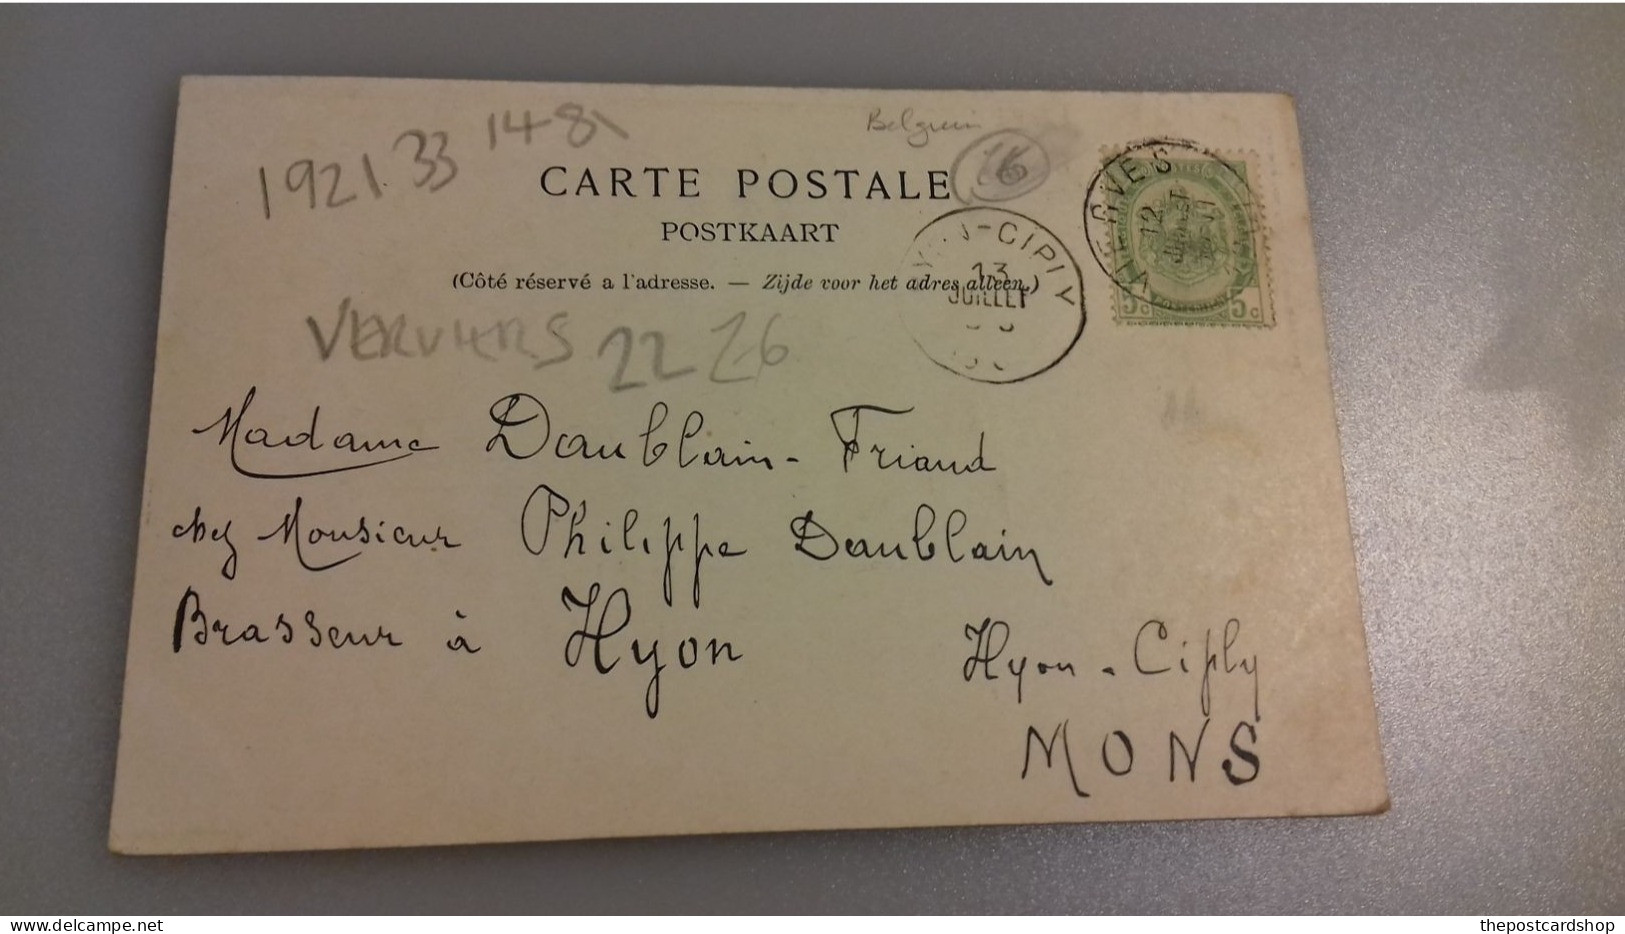 1921.33 1481
Belgium
16
CARTE POSTALE
POSTKAART
(Côté réservé a l'adresse. — Zijde voor het adres alleen.)
VIERVES
12
5c 5c
-CIPLY
13
JUILLET
VERVIERS 22 26
Madame Daublain-Friand
chez Monsieur Philippe Daublain
Brasseur à Hyon
Hyon-Ciply
MONS
thepostcardshop